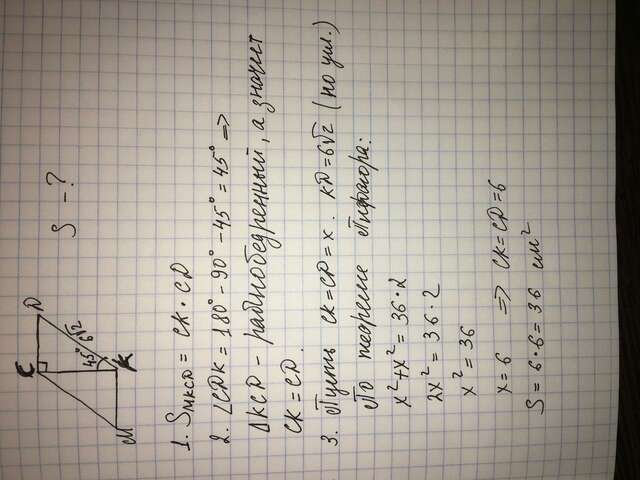 S - ?
C D
45° 6√2
M K
1. S MKCD = CK · CD
2. ∠CDK = 180° - 90° - 45° = 45° =>
ΔKCD - равнобедренный, а значит
CK = CD.
3. Пусть CK = CD = x. KD = 6√2 (по усл.)
По теореме Пифагора:
x² + x² = 36 · 2
2x² = 36 · 2
x² = 36
x = 6 => CK = CD = 6
S = 6 · 6 = 36 см²